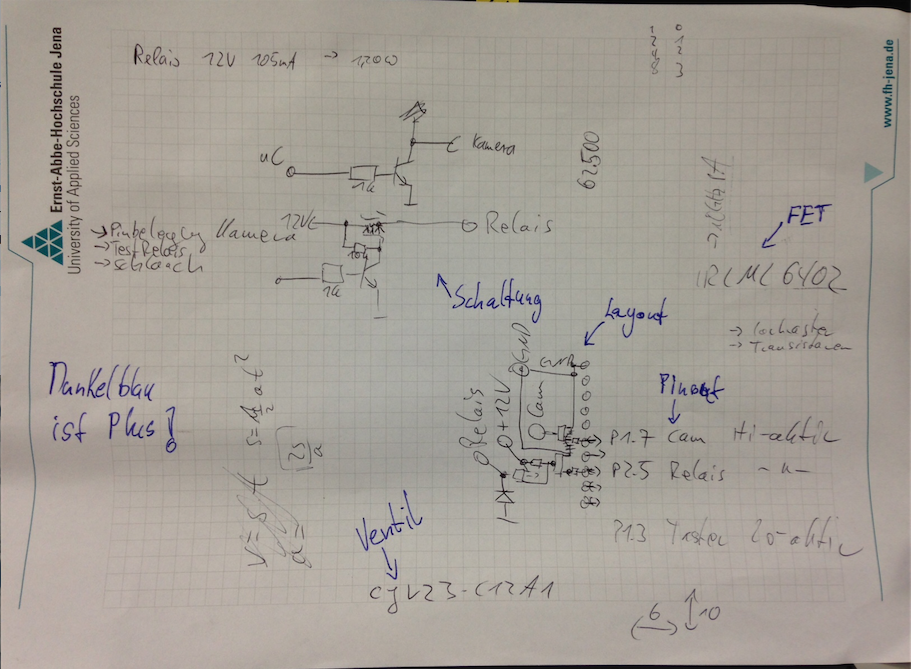 Ernst-Abbe-Hochschule Jena
University of Applied Sciences
www.fh-jena.de
Relais 12V 105mA → 1,20W
1 0
2 1
4 2
8 3
µC
1k
Kamera
62.500
12V
Relais
10k
1k
→ Pinbelegung Kamera
→ Test Relais
→ Schlauch
Schaltung
FET
IRLML 6402
Layout
→ Lochraster
→ Transistoren
Dunkelblau
ist Plus!
GND
GND
Relais
+12V
Cam
Pinout
P1.7 Cam Hi-aktiv
P2.5 Relais -"-
P1.3 Taster Lo-aktiv
Ventil
6
10